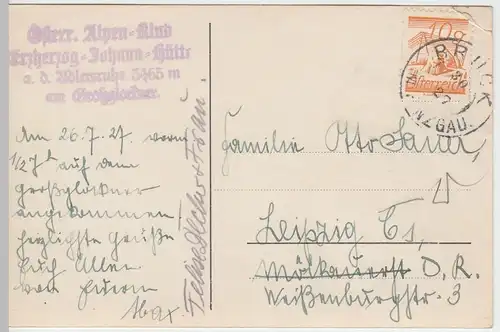 Österr. Alpen-Klub
Erzherzog-Johann-Hütte
a. d. Adlersruhe 3465 m
am Großglockner.
Am 26.7.27. vorm
1/2 7h auf dem
Großglockner
angekommen!
herzlichste Grüße
Euch Allen
von Eurem
Max.
Frau
10g
Österreich
BRUCK
NZGAU.
Familie Otto
Leipzig
Mölkauerstr D. R.
Weißenburgstr. 3